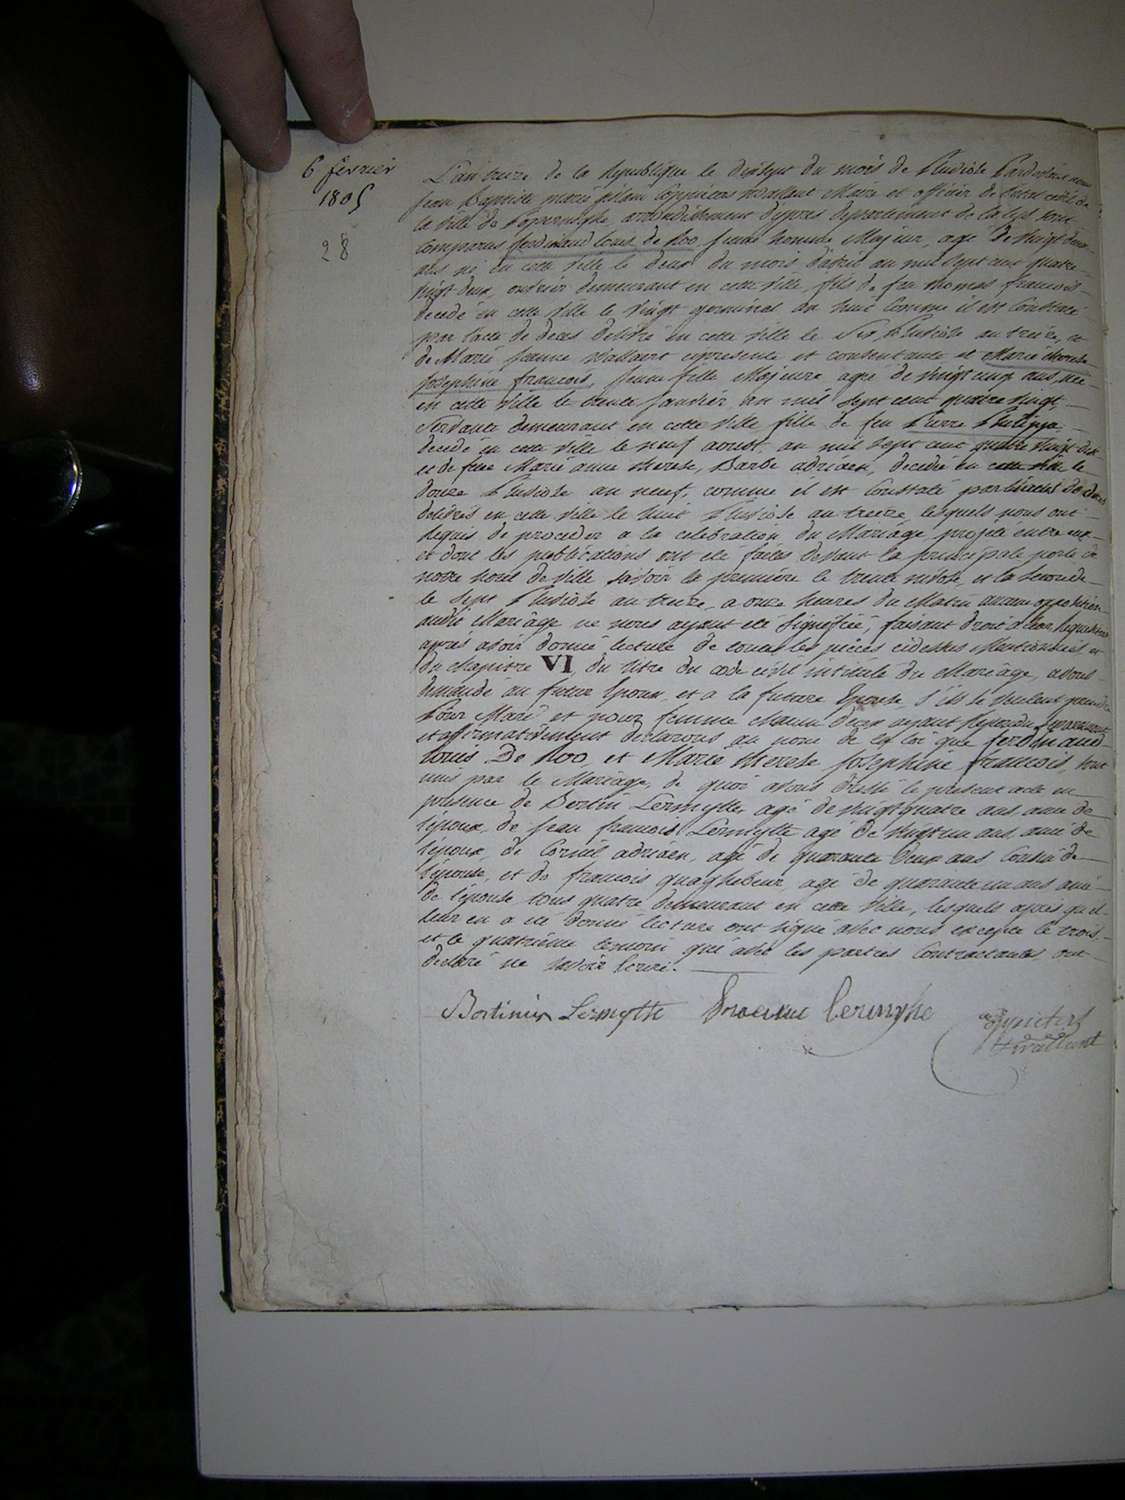 6 fevrier
1805
28
L'an treize de la Republique le dixsept du mois de Pluviose Pardevant nous
Jean Baptiste marie coppieters Wallant Maire et officier de l'état civil de
la Ville de Poperinghe arrondissement d'ypres departement de la Lys sont
Comparus ferdinand louis de Roo, jeune homme Majeur, agé de vingt deux
ans né en cette Ville le deux du mois d'avril an mil sept cent quatre
vingt deux, ouvrier demeurant en cette Ville, fils de feu thomas francois
decedé en cette Ville le vingt germinal an huit comme il est Constaté
par l'acte de deces delivré en cette Ville le six pluviose an treize, et
de Marie Jeanne Wallaert cipresente et consentante et Marie therese
Josephine francois, Jeune fille Majeure agée de vingt cinq ans, née
en cette Ville le trente Janvier an mil sept cent quatre vingt,
Servante demeurant en cette Ville fille de feu Pierre Philippe,
decedé en cette Ville le neuf aoust an mil sept cent quatre vingt dix
et de feue Marie anne therese, Barbe adriaen, decedée en cette ville le
douze Pluviose an neuf, comme il est Constaté par les actes de deces
delivrés en cette Ville le huit Pluviose an treize lesquels nous ont
requis de proceder a la celebration du Mariage projeté entre eux
et dont les publications ont été faites devant la principale porte de
notre hotel de Ville savoir la première le trente nivose, et la seconde
le sept Pluviose an treize, a onze heures du Matin aucune opposition
audit Mariage ne nous ayant été signifiée, faisant droit a leur requisition
après avoir donné lecture de toutes les pièces cidessus Mentionnées et
du chapitre VI, du titre du code civil intitulé du Mariage, avons
demandé au futur Epoux, et a la future Epouse s'ils veulent prendre
Pour Mari et pour femme chacun d'eux ayant repondu
et affirmativement declarons au nom de la loi que ferdinand
louis De Roo, et Marie therese Josephine francois, sont
unis par le Mariage, de quoi avons dressé le present acte en
presence de Bertin Lermytte, agé de vingt quatre ans ami de
l'époux, de Jean francois Lermytte agé de vingt un ans, ami de
l'époux, de Corneil adriaen, agé de quarante deux ans Cousin de
l'épouse, et de francois quaghebeur, agé de quarante un ans ami
de l'épouse, tous quatre demeurant en cette Ville, lesquels après qu'il
leur en a été donné lecture ont signé avec nous excepté le trois
et le quatrième temoin qui avec les parties Contractantes ont
declaré ne savoir ecrire.
Bertinus Lermytte
Lermythe
Coppieters
Wallant